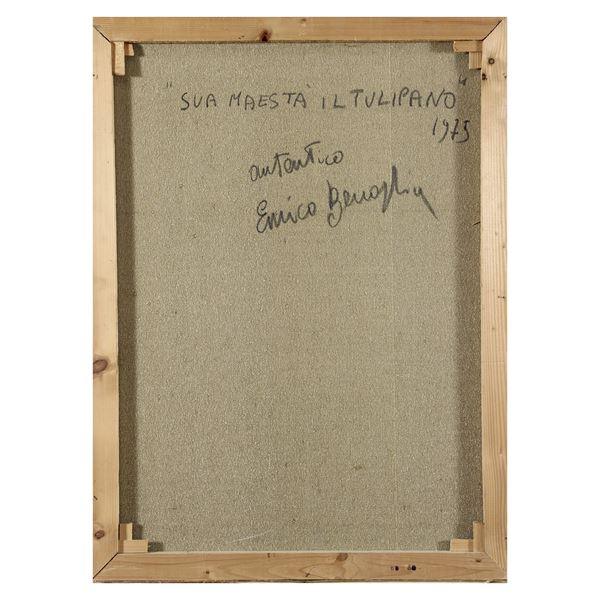 "SUA MAESTÀ IL TULIPANO"
1975
autentico
Enrico Benaglia